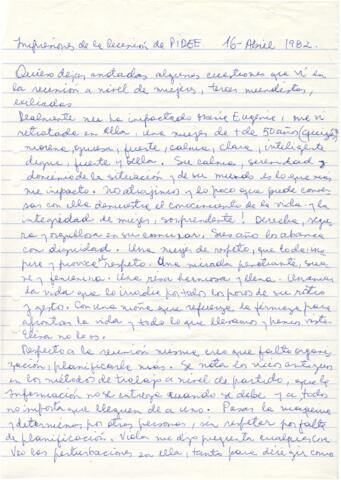 Impresiones de la reunión de PIDEE 16-Abril 1982.
Quiero dejar anotadas algunas cuestiones que vi en
la reunión a nivel de mujeres, tercer mundistas,
exiliadas
Realmente me ha impactado María Eugenia, me vi
retratada en ella, una mujer de + de 50 años (quizás)
morena, gruesa, fuerte, calma, clara, inteligente
digna, fuerte y bella. Su calma, serenidad y
dominio de la situación y de su mundo es lo que más
me impacto. No atrajimos y lo poco que pude conver
sar con ella demuestra el conocimiento de la vida y la
integridad de mujer, sorprendente! Derecha, segu
ra y orgullosa en su caminar. Sus años los abarca
con dignidad. Una mujer de respeto, que lo da, im
pire y provoca respeto. Una mirada penetrante, sua
ve y femenina. Una risa hermosa y llena.
La vida que la irradia por todos los poros de su rostro
y gesto. Con un moño que refuerza la firmeza para
afrontar la vida y todo lo que llevamos y hemos visto.
Elisa no los.
Respecto a la reunión misma, creo que faltó organi
zación, planificarla más. Se nota los vicios antiguos
en los métodos de trabajo a nivel de partido, que la
información no se entrega cuando se debe y a todos
no importa que lleguen de a uno. Pasar la máquina
y determinar por otras personas, sin respetar por falta
de planificación. Viola me dijo pregunta cualquier cosa.
Veo las perturbaciones en ella, tanto para dirigir como